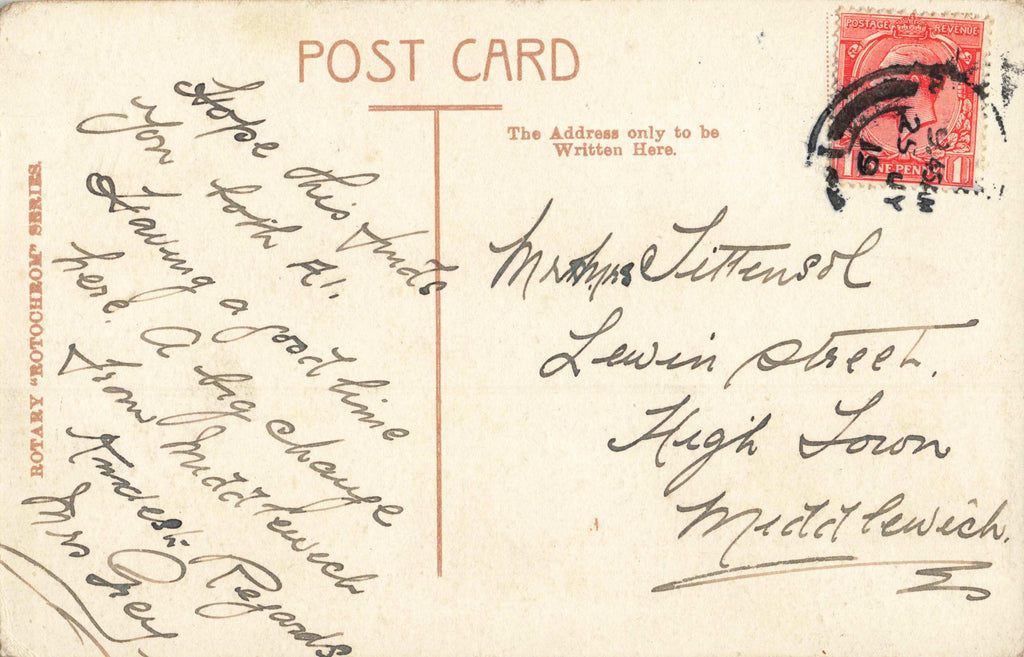 POST CARD
The Address only to be
Written Here.
ROTARY "ROTOCHROM" SERIES.
Hope this finds
you both A1.
Having a good time
here. A big change
from Middlewich
Kindest Regards
Mrs Grey
POSTAGE REVENUE
1 ONE PENNY 1
9.45AM
25 JY
19
Mr & Mrs Tittensol
Lewin street.
High Town
Middlewich.